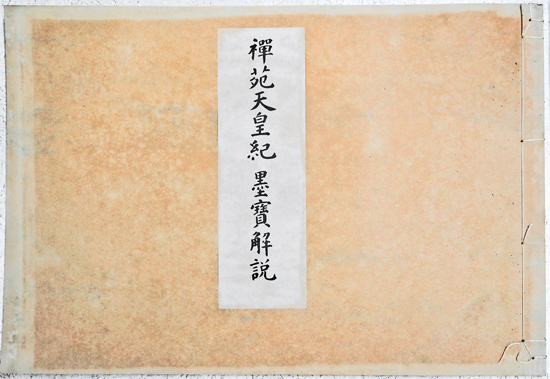 禪苑天皇紀 墨寶解説